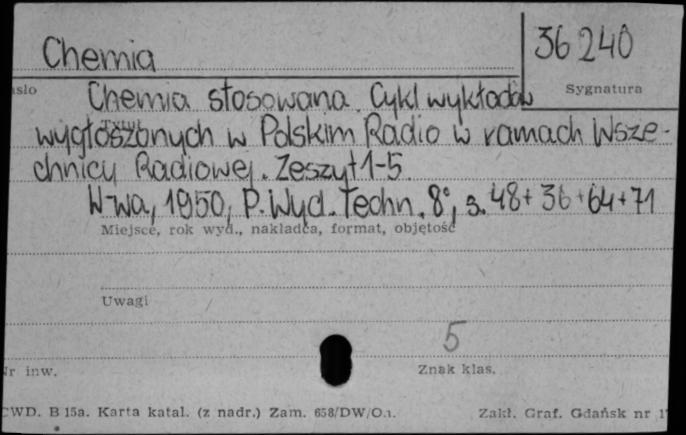 Chemia
36 240
Sygnatura
Chemia stosowana. Cykl wykładów
wygłoszonych w Polskim Radio w ramach Wsze-
chnicy Radiowej. Zeszyt 1-5.
W-wa, 1950, P. Wyd. Techn. 8°, s. 48+36+64+71
Miejsce, rok wyd., nakładca, format, objętość
Uwagi
5
Nr inw.
Znak klas.
CWD. B 15a. Karta katal. (z nadr.) Zam. 658/DW/O.1.
Zakł. Graf. Gdańsk nr